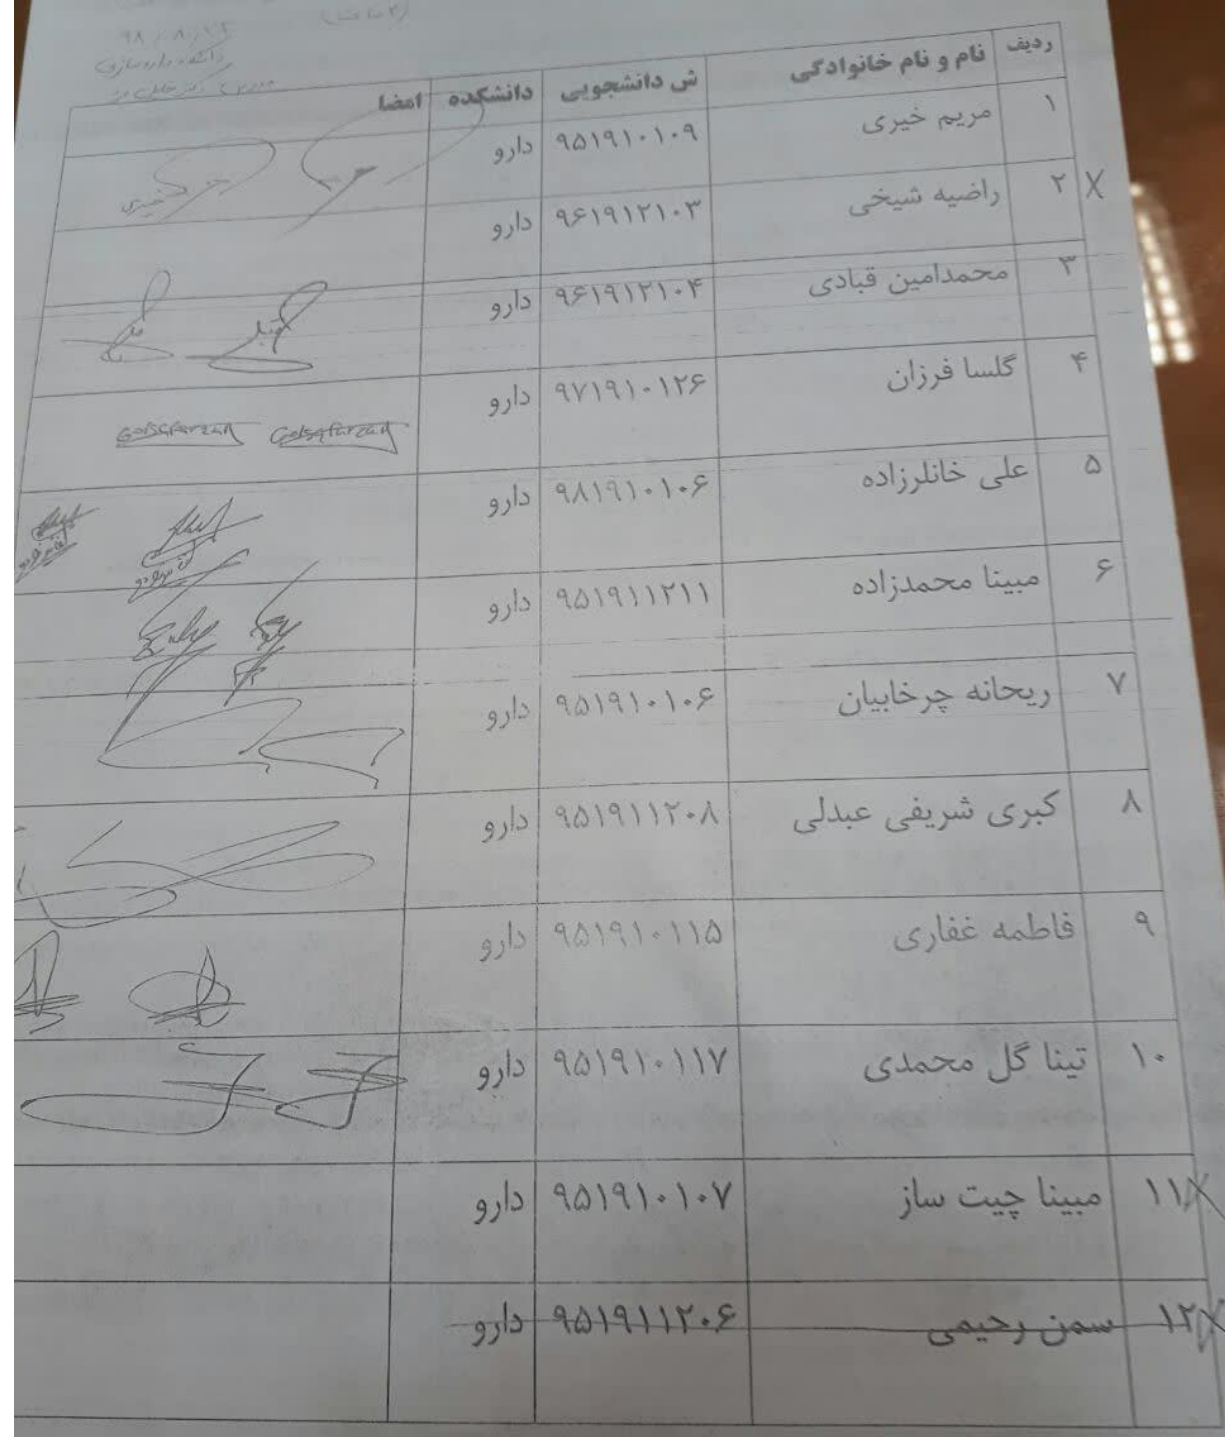 ۹۸/۸/۲۲
دانشکده داروسازی
ردیف نام و نام خانوادگی ش دانشجویی دانشکده امضا
۱ مریم خیری ۹۵۱۹۱۰۱۰۹ دارو
خیری
۲ راضیه شیخی ۹۶۱۹۱۲۱۰۳ دارو
۳ محمدامین قبادی ۹۶۱۹۱۲۱۰۴ دارو
۴ گلسا فرزان ۹۷۱۹۱۰۱۲۶ دارو
Golsafarzan Golsafarzan
۵ علی خانلرزاده ۹۸۱۹۱۰۱۰۶ دارو
۶ مبینا محمدزاده ۹۵۱۹۱۱۲۱۱ دارو
۷ ریحانه چرخابیان ۹۵۱۹۱۰۱۰۶ دارو
۸ کبری شریفی عبدلی ۹۵۱۹۱۱۲۰۸ دارو
۹ فاطمه غفاری ۹۵۱۹۱۰۱۱۵ دارو
۱۰ تینا گل محمدی ۹۵۱۹۱۰۱۱۷ دارو
۱۱ مبینا چیت ساز ۹۵۱۹۱۰۱۰۷ دارو
۱۲ سمن رحیمی ۹۵۱۹۱۱۲۰۶ دارو